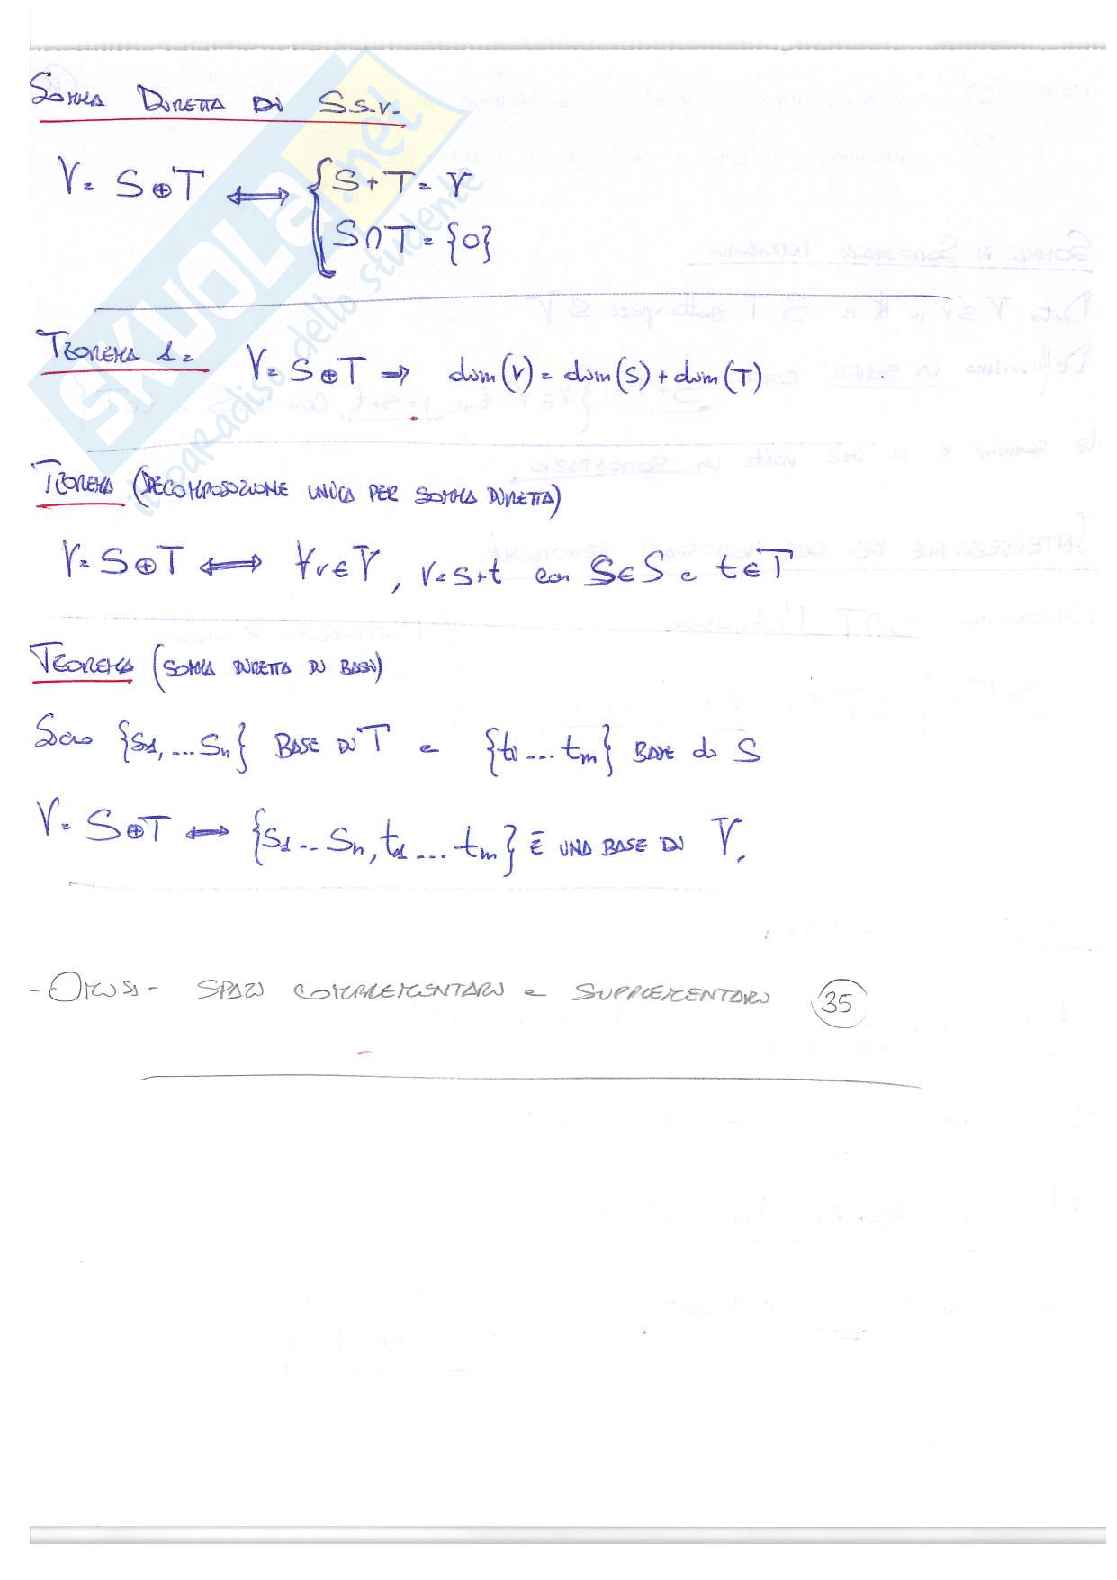 SOMMA DIRETTA DI S.S.V.
V = S ⊕ T ⟺ { S + T = V
S ∩ T = {0}
TEOREMA 1: V = S ⊕ T ⇒ dim(V) = dim(S) + dim(T)
TEOREMA (DECOMPOSIZIONE UNICA PER SOMMA DIRETTA)
V = S ⊕ T ⟺ ∀v ∈ V, v = s + t con s ∈ S e t ∈ T
TEOREMA (SOMMA DIRETTA DI BASI)
Siano {s1, ... sn} BASE DI T e {t1 ... tm} BASE di S
V = S ⊕ T ⟺ {s1 ... sn, t1 ... tm} È UNA BASE DI V.
- OMISSI - SPAZI COMPLEMENTARI e SUPPLEMENTARI 35
SKUOLA.net
il paradiso dello studente